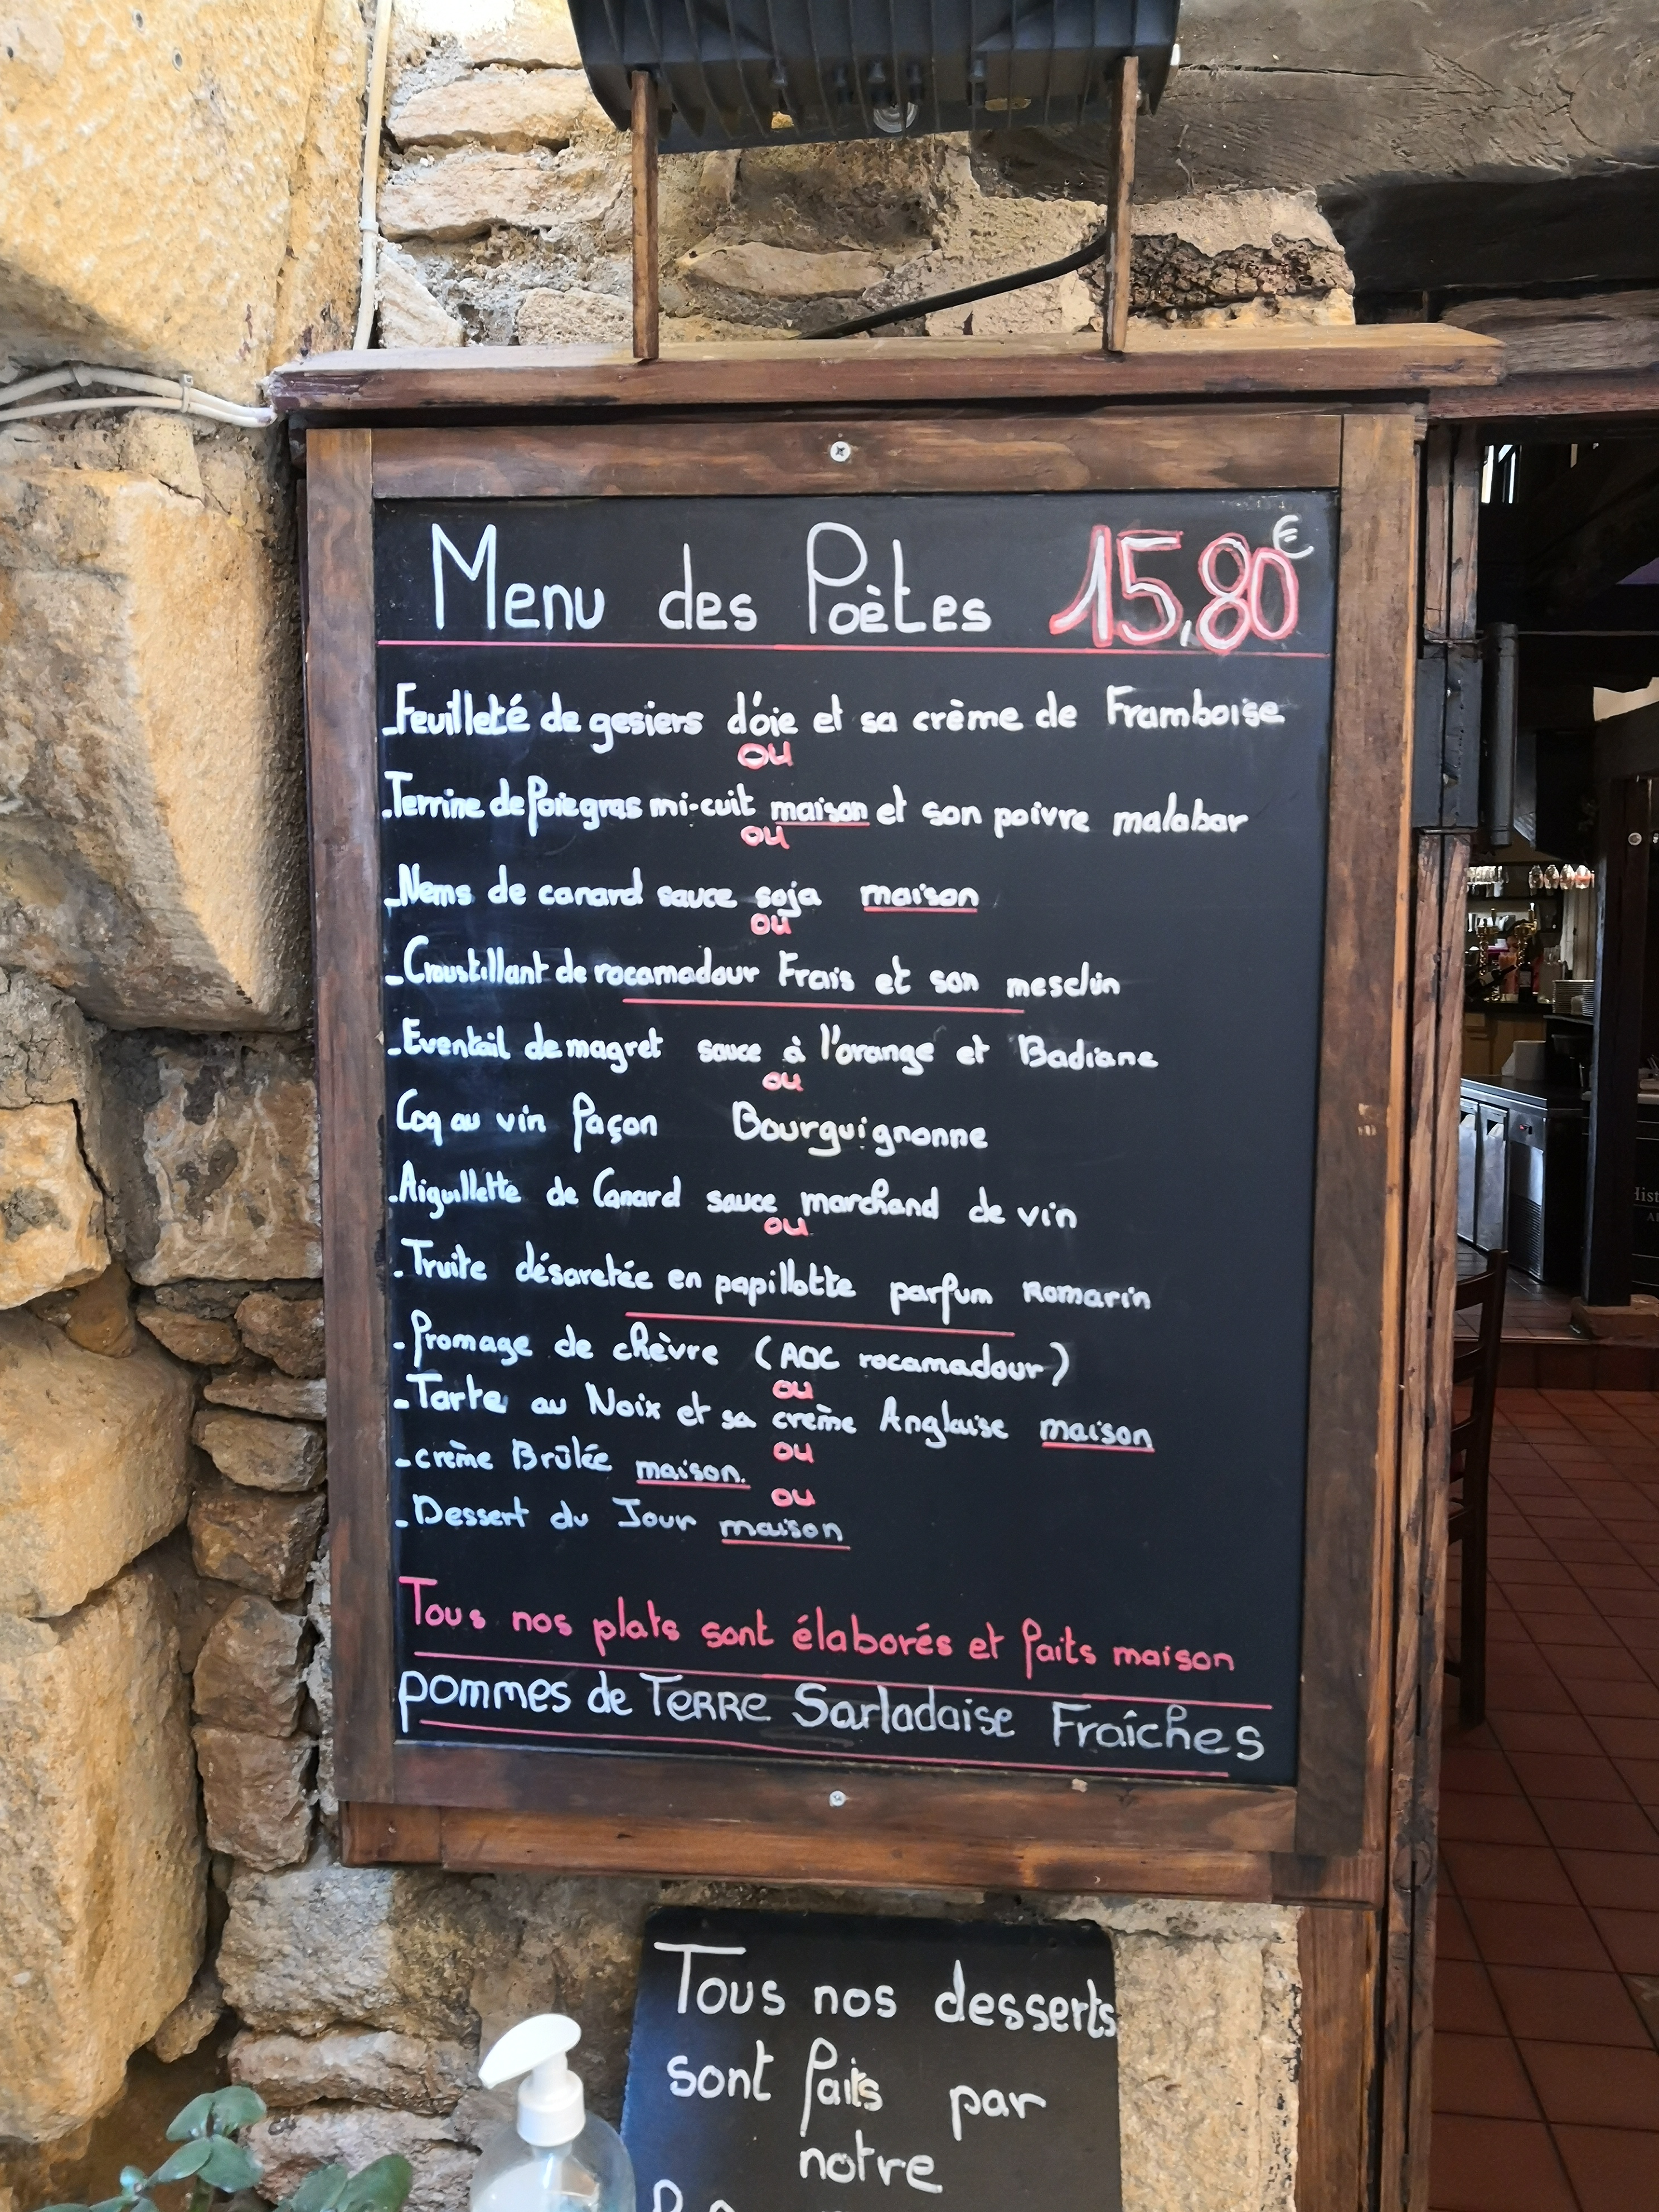 Menu des Poètes 15,80€
-Feuilleté de gesiers d'oie et sa crème de Framboise
ou
-Terrine de foie gras mi-cuit maison et son poivre malabar
ou
-Nems de canard sauce soja maison
ou
-Croustillant de rocamadour Frais et son mesclun
-Eventail de magret sauce à l'orange et Badiane
ou
Coq au vin façon Bourguignonne
-Aiguillette de Canard sauce marchand de vin
ou
-Truite désaretée en papillotte parfum Romarin
-fromage de chèvre (AOC rocamadour)
ou
-Tarte au Noix et sa crème Anglaise maison
ou
-crème Brûlée maison.
ou
-Dessert du Jour maison
Tous nos plats sont élaborés et faits maison
pommes de TERRE Sarladaise Fraîches
Tous nos desserts
sont faits par
notre